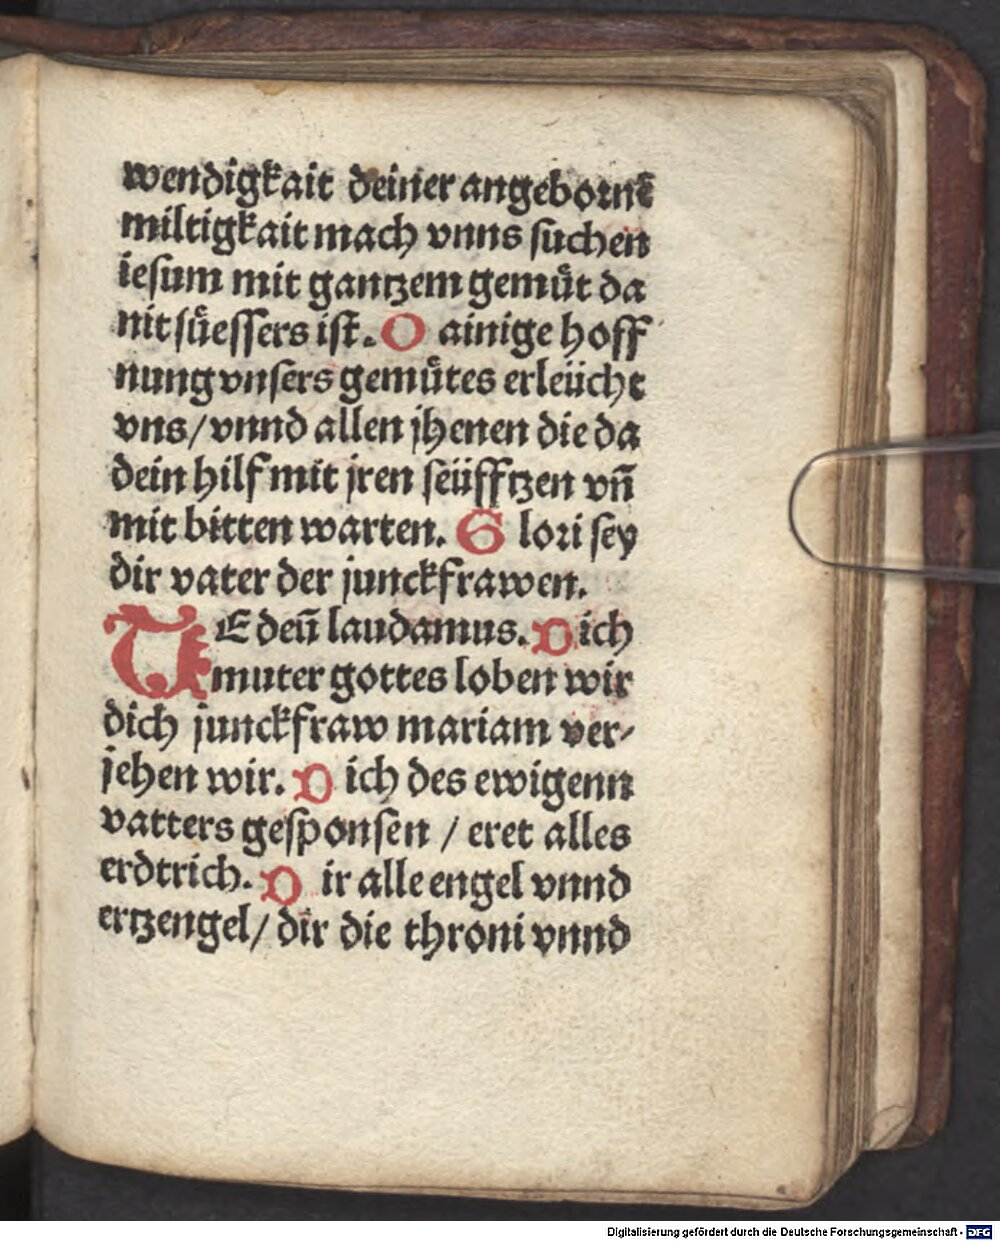 wendigkait deiner angebornē
miltigkait mach vnns suchen
iesum mit gantzem gemuͤt da
nit suͤessers ist. O ainige hoff
nung vnsers gemuͤtes erleücht
vns/vnnd allen jhenen die da
dein hilf mit jren seüfftzen vñ
mit bitten warten. Glori sey
dir vater der junckfrawen.
TE deū laudamus. Dich
muter gottes loben wir
dich junckfraw mariam ver-
jehen wir. Dich des ewigenn
vatters gesponsen / eret alles
erdtrich. Dir alle engel vnnd
ertzengel/ dir die throni vnnd
Digitalisierung gefördert durch die Deutsche Forschungsgemeinschaft - DFG